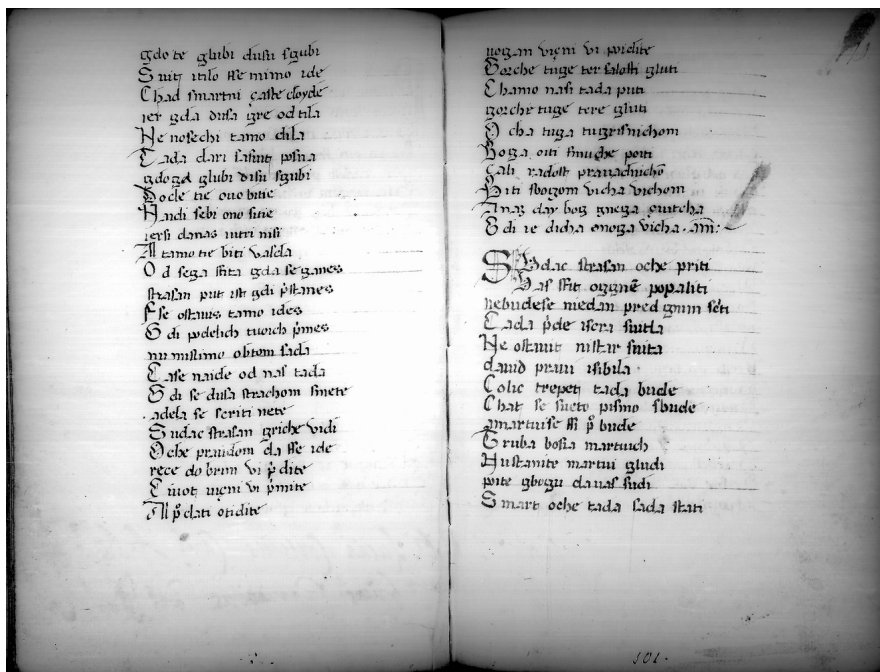 gdo te glubi dusu sgubi
Suit i tilo sse mimo ide
Chad smartni çaste doyde
ier gda dusa gre od tila
He nosechi tamo dila
Tada dari sasuit posna
gdogd glubi disu sgubi
Docle tie ono bitie
Naidi sebi ono sitie
iersi danas iutri nisi
A tamo tie biti vasda
Od sega sfita gda se ganes
strasan put ist gdi p̄stanes
Fse ostauis tamo ides
Gdi po delich tuoich p̄mes
nu mislimo ob tom sada
Ca se naide od nas tada
Gdi se dusa strachom smete
a dela se scriti nete
Sudac strasan griche vidi
Oche praudom da sse ide
rece dobrim vi p̄dite
Çiuot viçni vi p̄mite
A p̄clati otidite
v ogan viçni vi poidite
Gorche tuge ter salosti gluti
Chamo nasi tada puti
gorche tuge tere gluti
O cha tuga tu grisnichom
Boga oiti s muche poiti
Çali radost prauadnichō
Biti s bogom vicha vichom
A naz day bog gnega ouitcha
Gdi ie dicha onoga vicha. am̄:
Sudac strasan oche priti
Vas sfit oggnē popaliti
ne budese niedan pred gnim sc̄ti
Tada p̄de iscra suitla
Ne ostauit nistar suita
dauid praui i sibila
Colic trepet tada bude
Chat se sueto pismo sbude
martui se ssi p̄bude
Truba bosia martuich
Nu stanite martui gludi
poite g bogu da vas sudi
Smart oche tada sada stati
101.